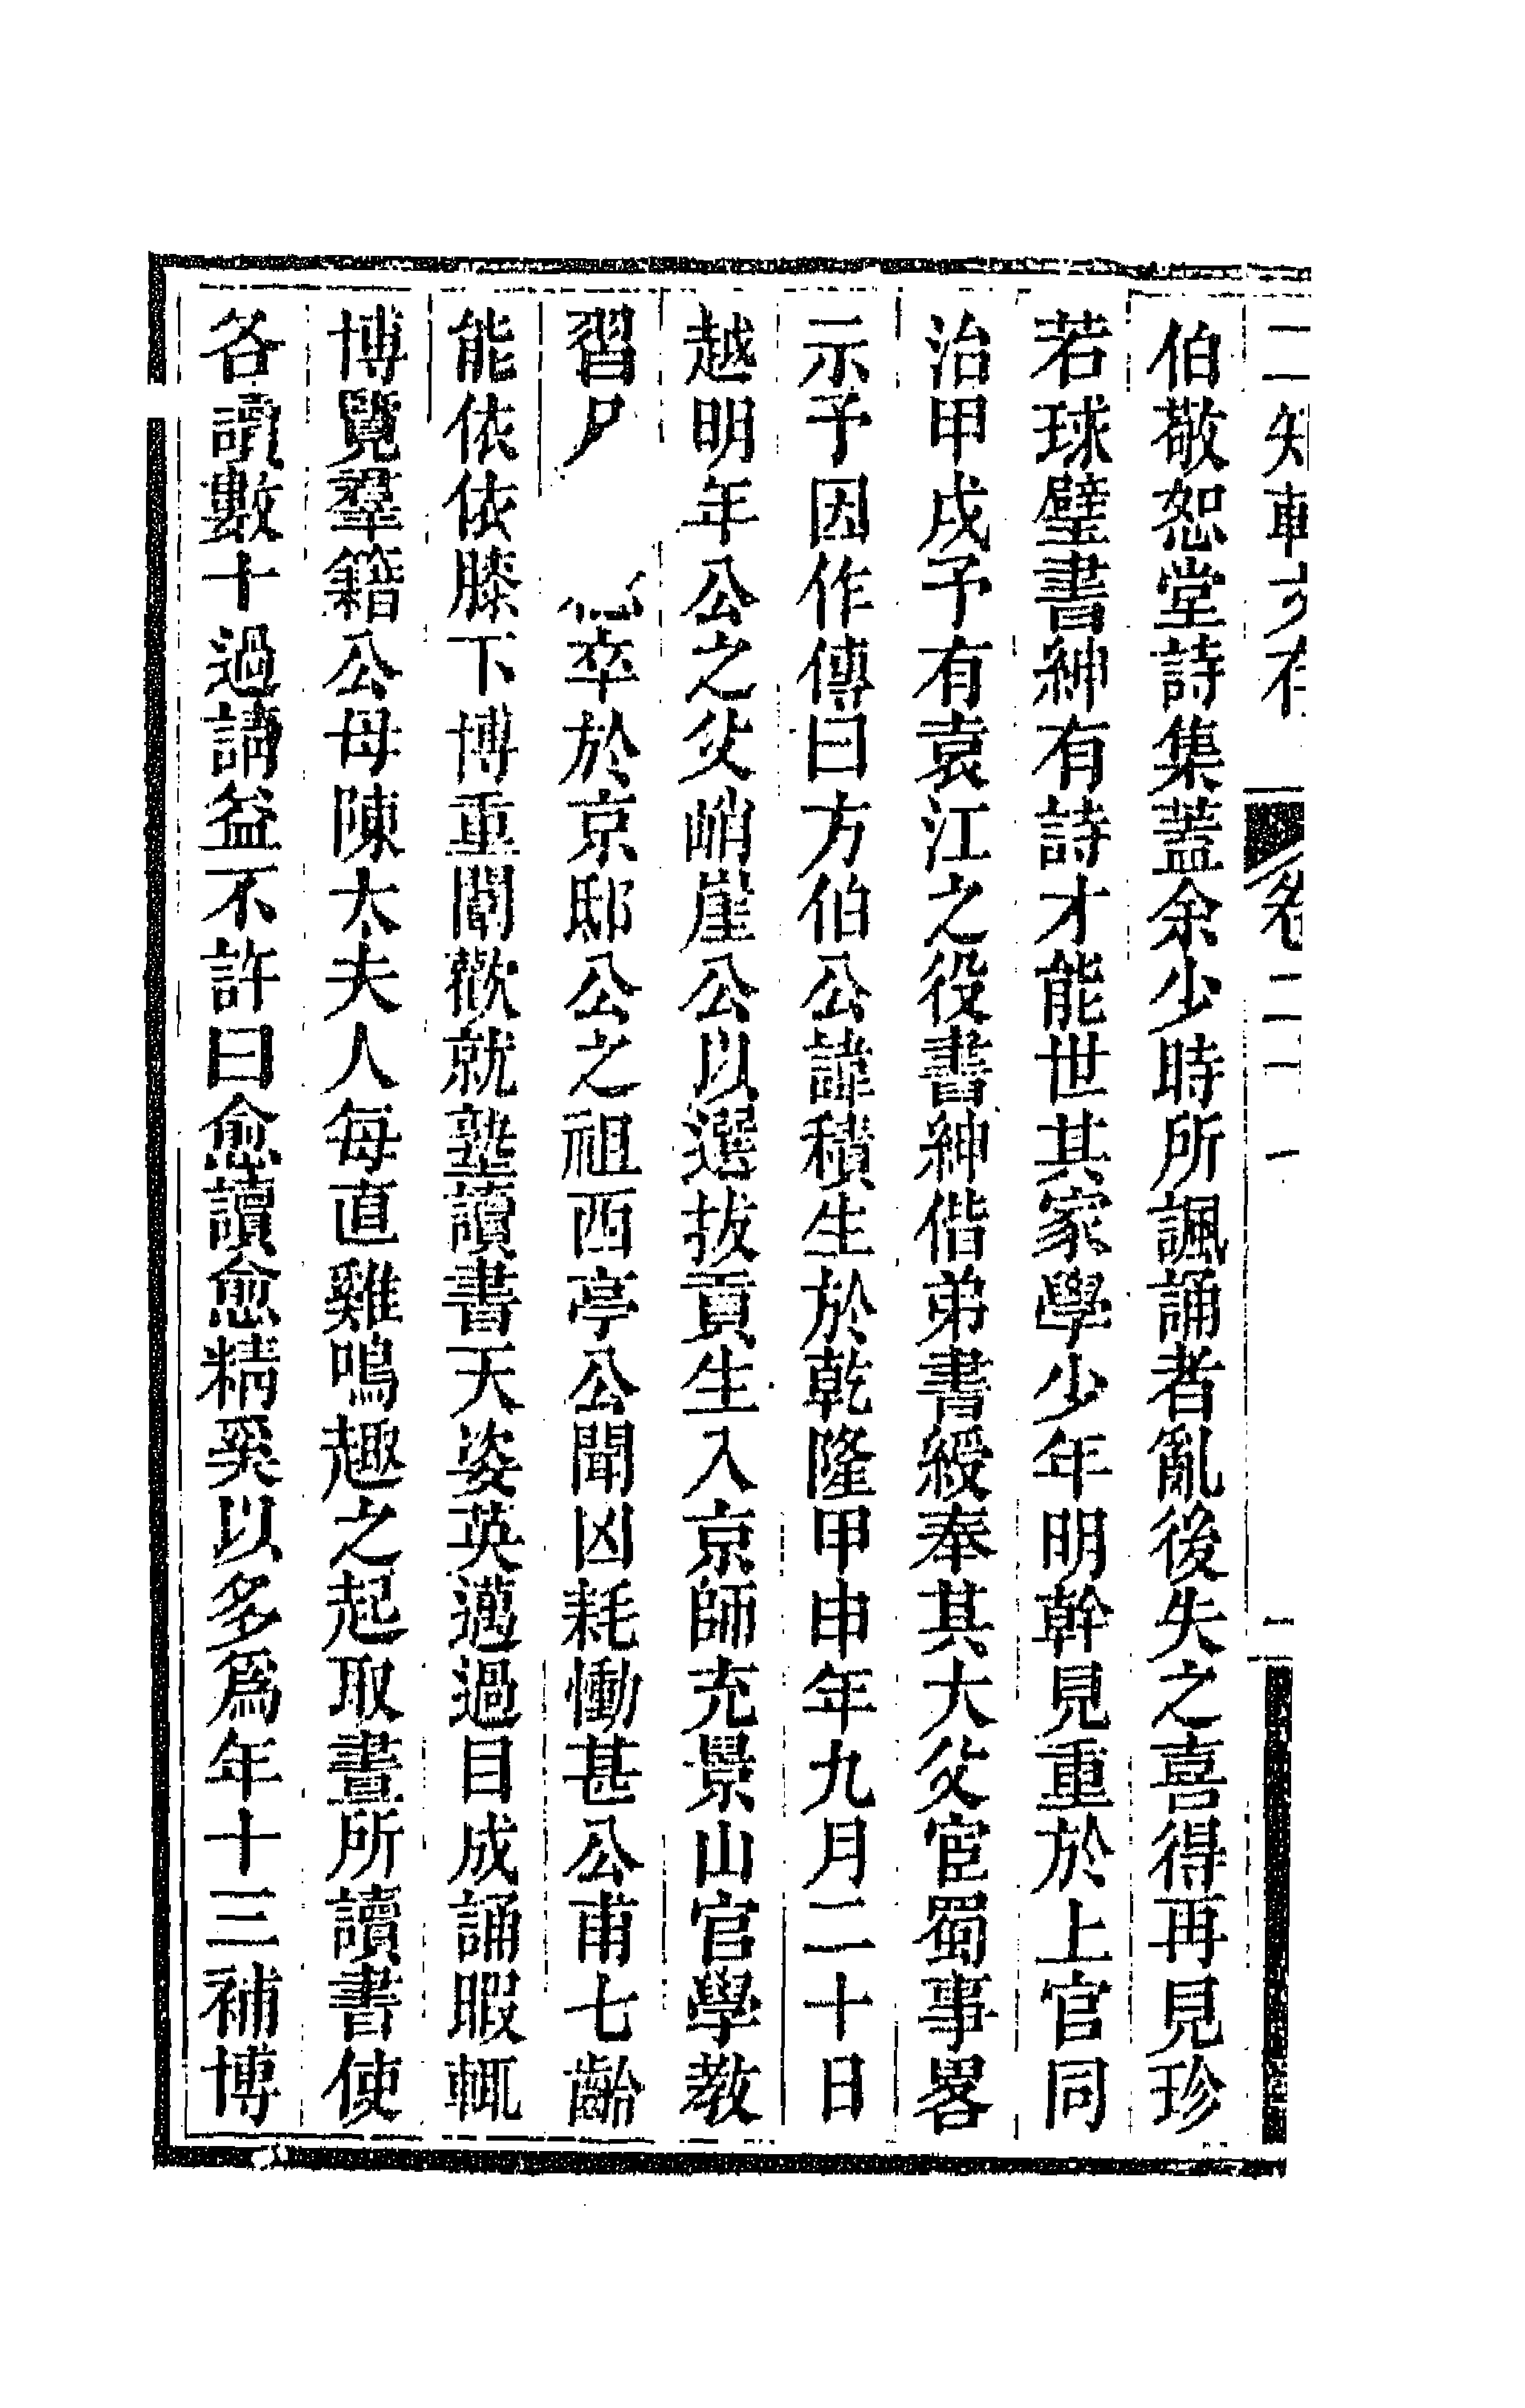 二知軒文存 卷二十一 二
伯敬恕堂詩集蓋余少時所諷誦者亂後失之喜得再見珍
若球璧書紳有詩才能世其家學少年明幹見重於上官同
治甲戌予有袁江之役書紳偕弟書綬奉其大父宦蜀事畧
示予因作傳曰方伯公諱積生於乾隆甲申年九月二十日
越明年公之父峭崖公以選拔貢生入京師充景山官學教
習 卒於京邸公之祖西亭公聞凶耗慟甚公甫七齡
能依依膝下博重闈歡就塾讀書天姿英邁過目成誦暇輒
博覽羣籍公母陳太夫人每直雞鳴趣之起取晝所讀書使
各讀數十過請益不許曰愈讀愈精奚以多爲年十三補博